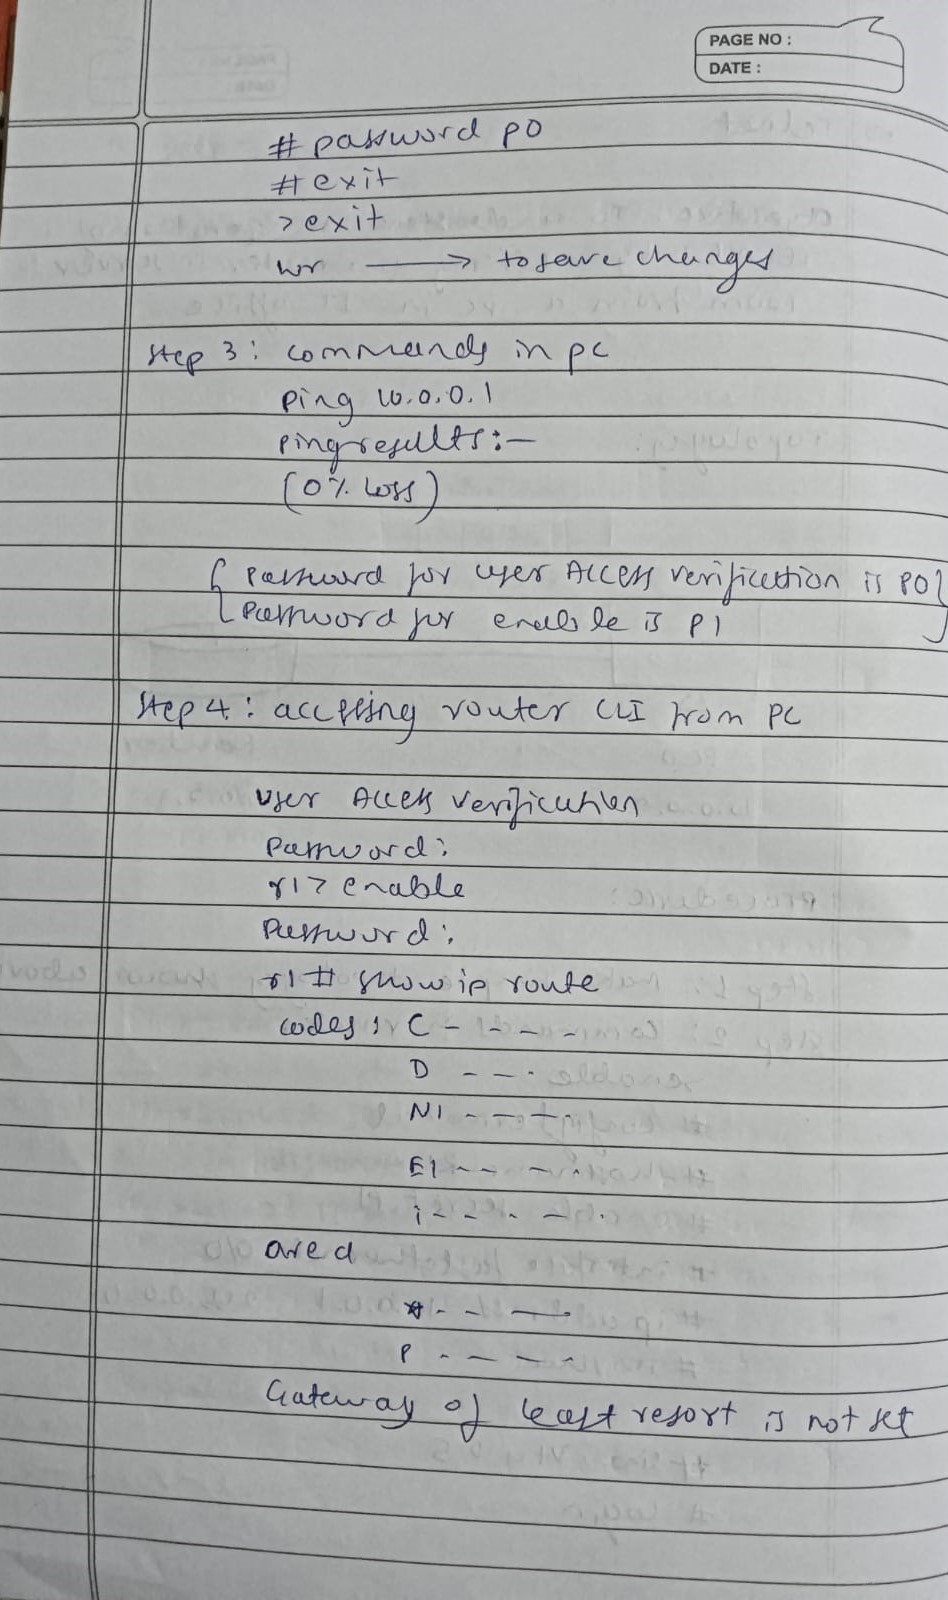 PAGE NO :
DATE :
# password p0
# exit
> exit
wr → to save changes
Step 3: commands in pc
ping 10.0.0.1
ping results:-
(0% loss)
{ Password for user Access verification is p0 }
{ Password for enable is p1 }
Step 4: accessing router CLI from PC
User Access Verification
Password:
r1> enable
Password:
r1# show ip route
codes: C - - - - -
D - - -
N1 - - - -
E1 - - - -
i - - - - -
area
* - - - -
P - - - -
Gateway of least resort is not set